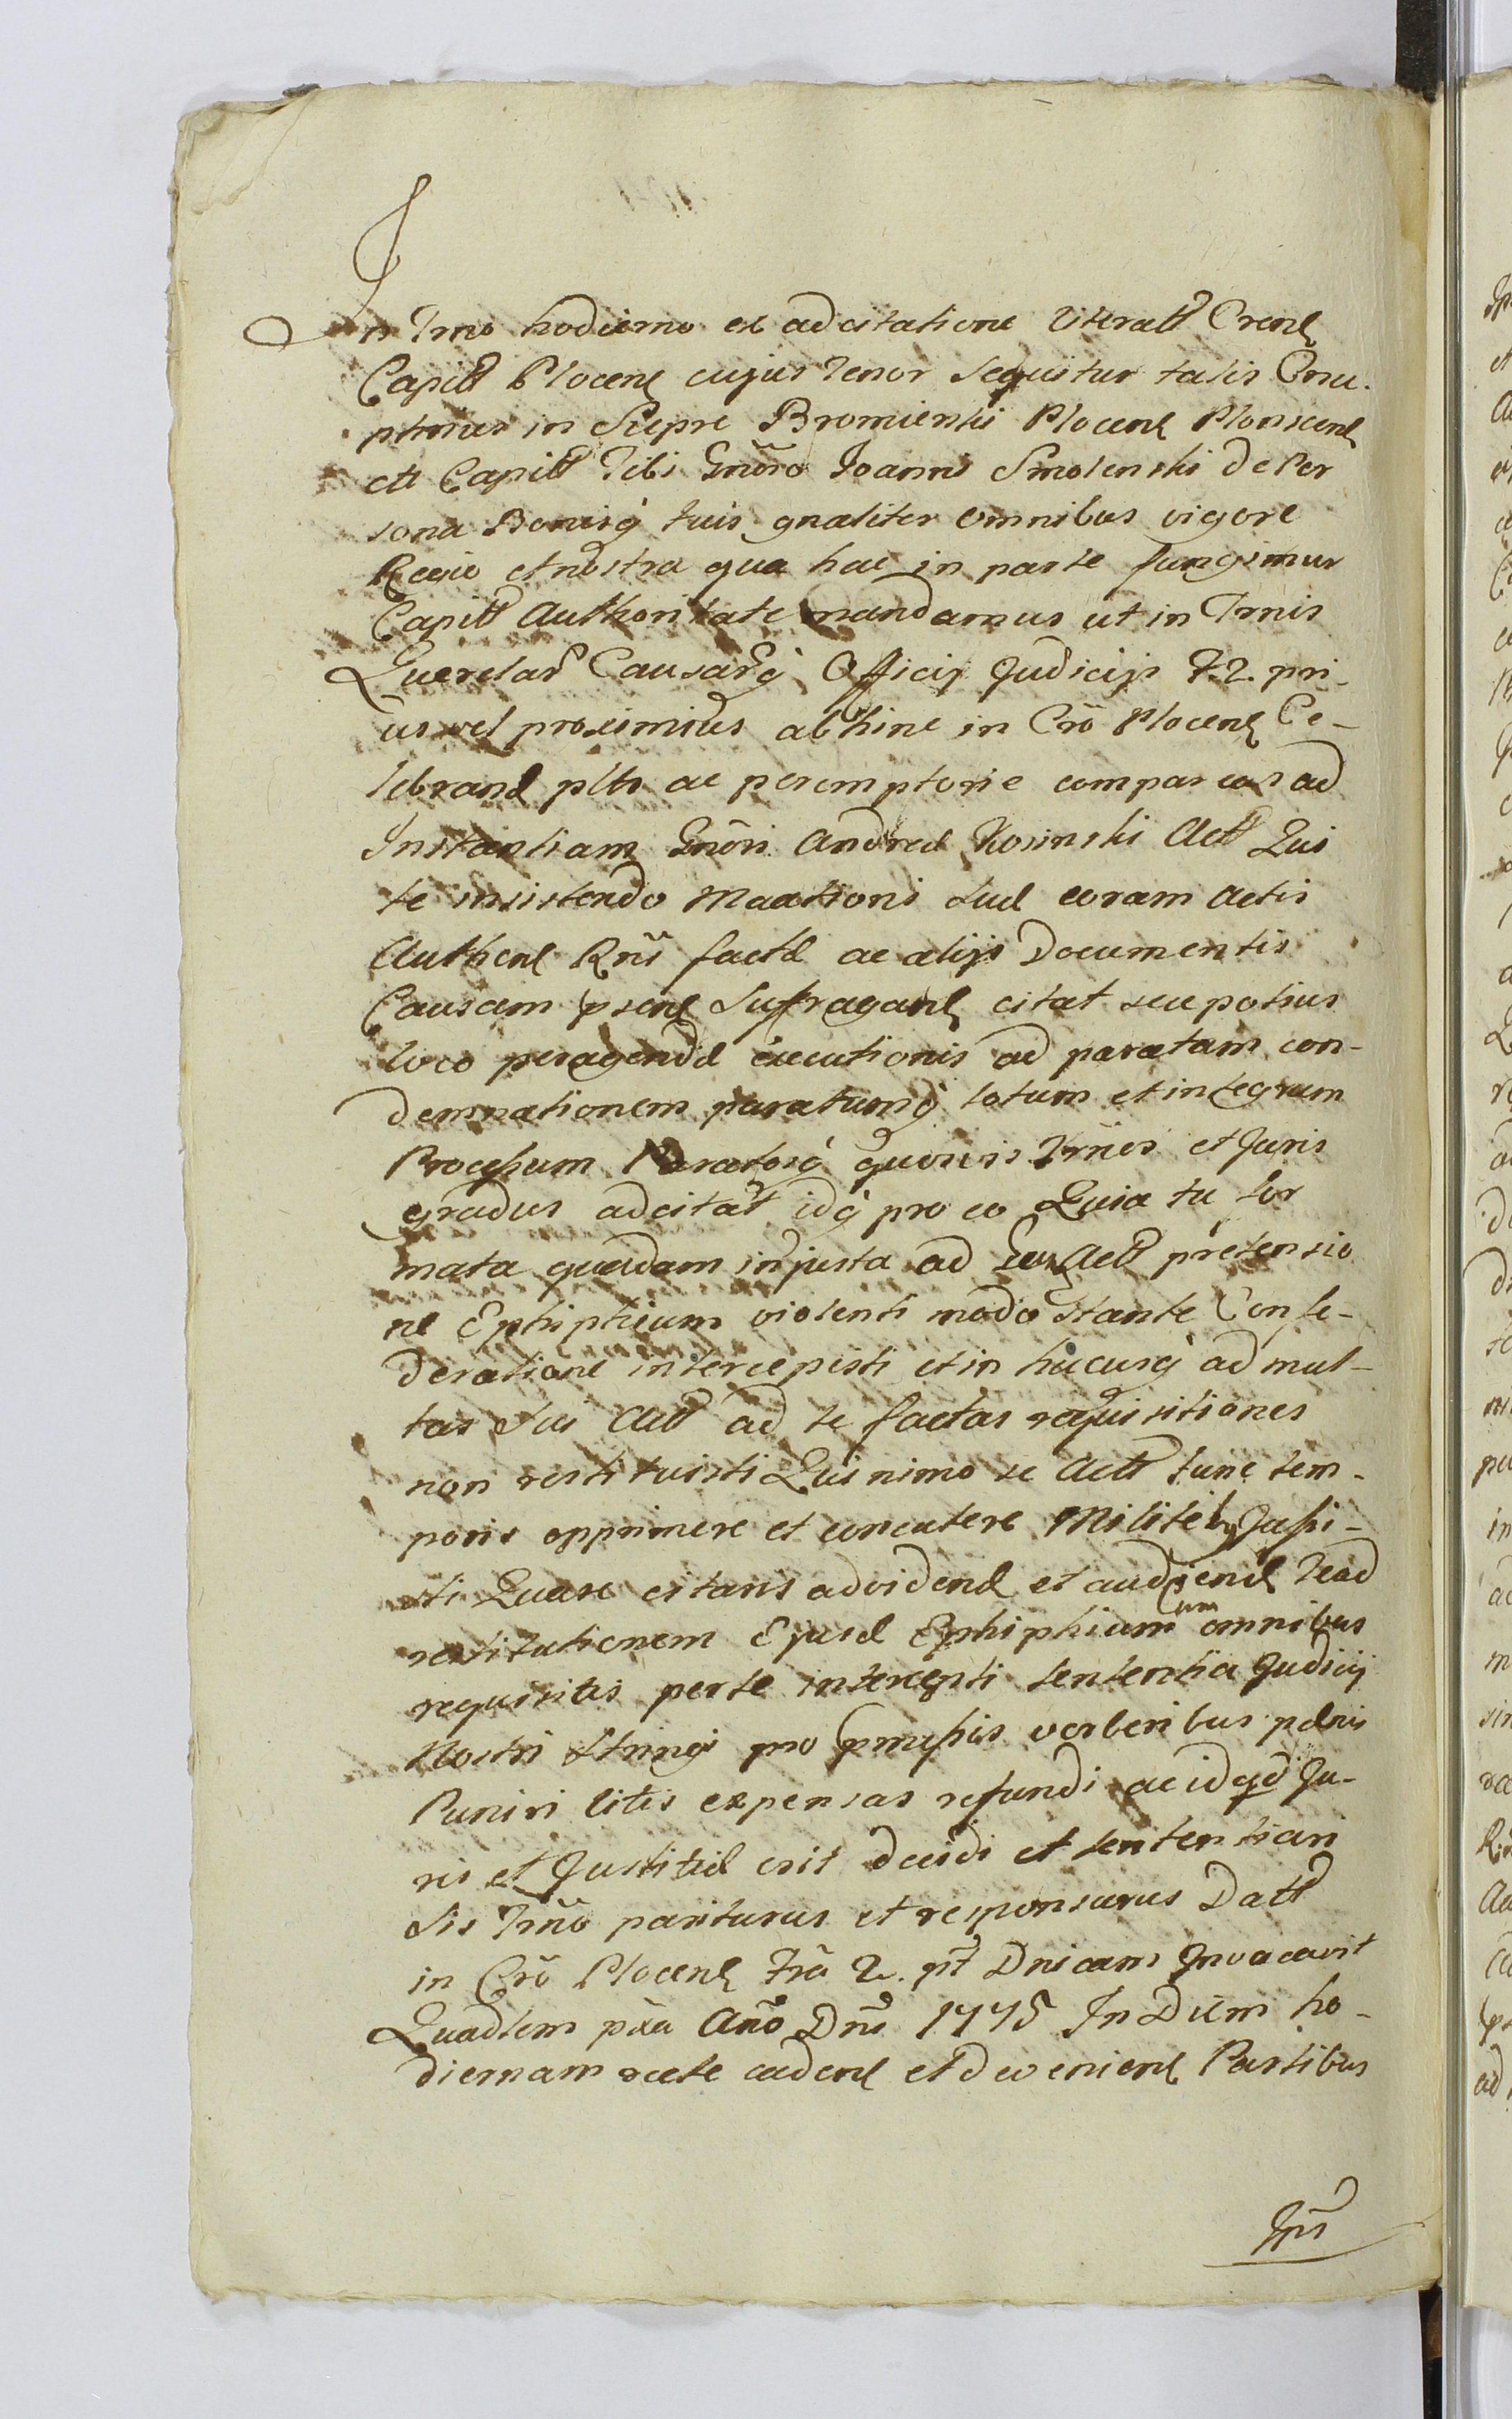 In Trno hodierno ex adcitatione literali Crens
Capitl Plocens cujus tenor sequitur talis Consu-
ptimus in Siepre Bromienski Plocens Plonscens
ett Capitl Tibi Gnōro Joanni Smolenski de Per
sona Bonisq tuis gnaliter omnibus vigore
Regia et nostra qua hac in parte fungimur
Capitl Authoritate mandamus ut in Trnis
Querelar Causarq Officij Judicijs F. 2. pri-
us vel proximius abhinc in Crō Plocens Ce-
lebrand pltr ac peremptorie compareas ad
Instantiam Gnōri Andreæ Kosinski Actl Qui
te insistendo Man̄tioni suæ coram Actis
Authens Rn̄s factæ ac alijs Documentis
Causam psens Suffragans citat seu potius
loco peragendæ executionis ad paratam con-
demnationem paratumq totum et integrum
Processum Paratosq quosvis Trn̄os et Juris
gradus adcitat idq pro eo Quia tu for
mata quadam injusta ad Eund Actl prætensio
ne Ephiphium violenti modo stante Confe-
deratione intercepisti et in hucusq ad mul-
tas sui Actl ad te factas requisitiones
non restituisti Quinimo te Actl tunc tem-
poris opprimere et concutere Militib Jussi-
sti Quare citaris ad videnđ et audienđ te ad
restitutionem Ejusđ Ephiphium cum omnibus
requisitis per te intercepti sententia Judicij
Nostri stringi pro pmissis verberibus pænis
Puniri litis expensas refundi ac id qd Ju-
ris et Justitiæ erit decidi et sententiari
Sis Trn̄o pariturus et responsurus Datt
in Crō Plocens Fr̄a 2. pt̄ Dnicam Invocavit
Quadlem px̄a Ann̄o Dn̄i 1775 In Diem ho-
diernam recte cadens et deveniens Partibus
Ipsis